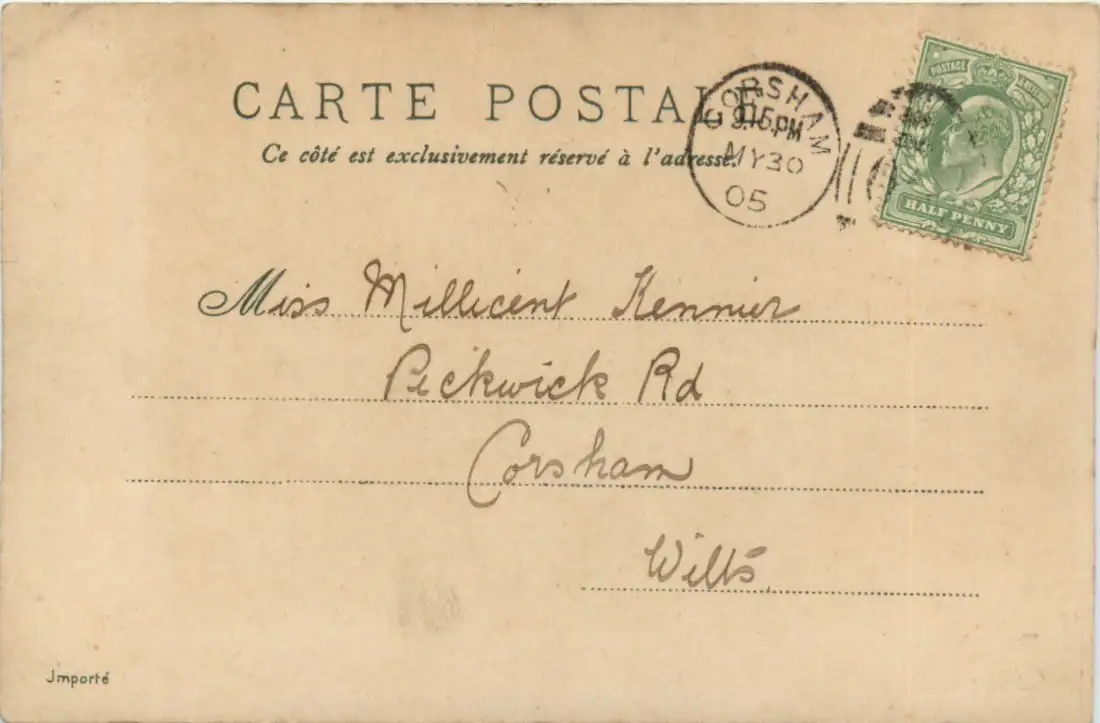 CARTE POSTALE
Ce côté est exclusivement réservé à l'adresse.
CORSHAM
9.15 PM
MY 30
05
POSTAGE REVENUE
HALF PENNY
Miss Millicent Kennier
Pickwick Rd
Corsham
Wilts
Importé